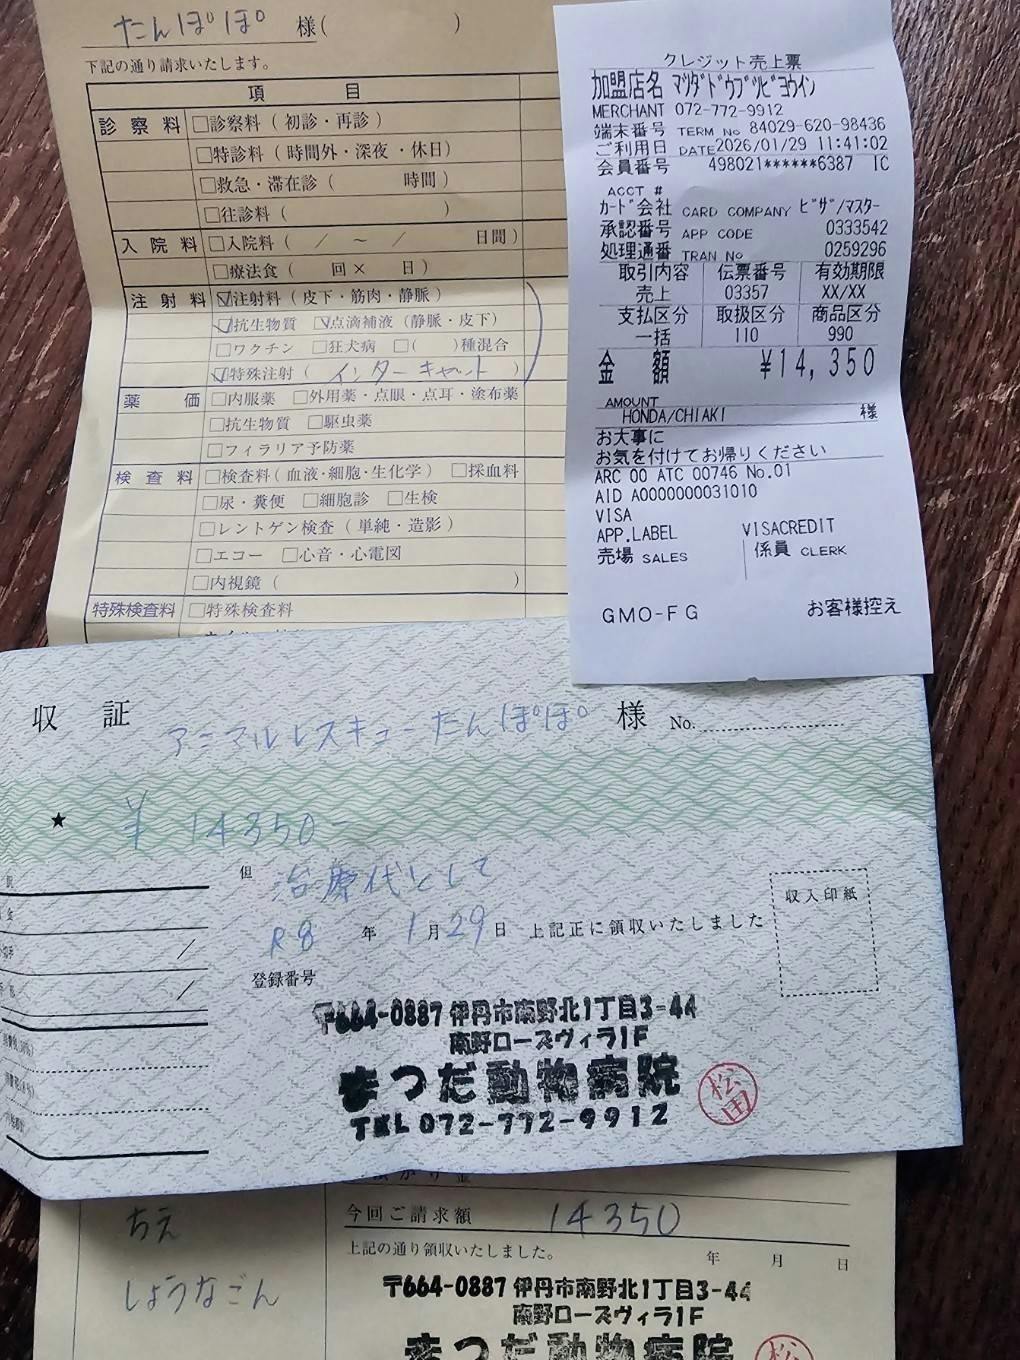 たんぽぽ 様( )
下記の通り請求いたします。
項 目
診察料 □診察料(初診・再診)
□特診料(時間外・深夜・休日)
□救急・滞在診( 時間)
□往診料( )
入院料 □入院料( / ～ / 日間)
□療法食( 回× 日)
注射料 ☑注射料(皮下・筋肉・静脈)
☑抗生物質 ☑点滴補液(静脈・皮下)
□ワクチン □狂犬病 □( )種混合
☑特殊注射(インターキャット)
薬価 □内服薬 □外用薬・点眼・点耳・塗布薬
□抗生物質 □駆虫薬
□フィラリア予防薬
検査料 □検査料(血液・細胞・生化学) □採血料
□尿・糞便 □細胞診 □生検
□レントゲン検査(単純・造影)
□エコー □心音・心電図
□内視鏡( )
特殊検査料 □特殊検査料
クレジット売上票
加盟店名 マツダドウブツビヨウイン
MERCHANT 072-772-9912
端末番号 TERM No 84029-620-98436
ご利用日 DATE 2026/01/29 11:41:02
会員番号 498021******6387 IC
ACCT #
カード会社 CARD COMPANY ビザ/マスター
承認番号 APP CODE 0333542
処理通番 TRAN No 0259296
取引内容 伝票番号 有効期限
売上 03357 XX/XX
支払区分 取扱区分 商品区分
一括 110 990
金額 ¥14,350
AMOUNT
HONDA/CHIAKI 様
お大事に
お気を付けてお帰りください
ARC 00 ATC 00746 No.01
AID A0000000031010
VISA
APP.LABEL VISACREDIT
売場 SALES 係員 CLERK
GMO-FG お客様控え
収 証
アニマルレスキューたんぽぽ 様 No.
★ ¥14350-
但 治療代として
収入印紙
R8 年 1月29日 上記正に領収いたしました
登録番号
〒664-0887 伊丹市南野北1丁目3-44
南野ローズヴィラ1F
まつだ動物病院
TEL 072-772-9912
松田
ちえ
しょうなごん
今回ご請求額 14350
上記の通り領収いたしました。
年 月 日
〒664-0887 伊丹市南野北1丁目3-44
南野ローズヴィラ1F
まつだ動物病院